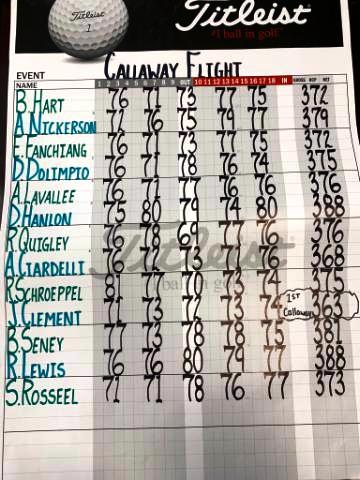 Titleist
1
Titleist
#1 ball in golf
EVENT CALLAWAY FLIGHT
NAME 1 2 3 4 5 6 7 8 9 OUT 10 11 12 13 14 15 16 17 18 IN GROSS HCP NET
B.HART 76 71 73 77 75 372
A.NICKERSON 72 76 75 79 77 379
F.FANCHIANG 76 71 73 77 75 372
D.DOLIMPIO 76 71 78 76 74 375
A.LAVALLEE 76 71 77 76 76 376
D.HANLON 75 80 79 74 80 388
R.QUIGLEY 76 78 69 77 76 376
A.CIARDELLI 73 76 368
R.SCHROEPPEL 81 74 375
J.CLEMENT 74 1ST Callaway 363
B.SENEY 77 73 78 78 75 381
R.LEWIS 76 76 80 79 77 388
S.ROSSEEL 71 71 78 76 77 373
Titleist
#1 ball in golf